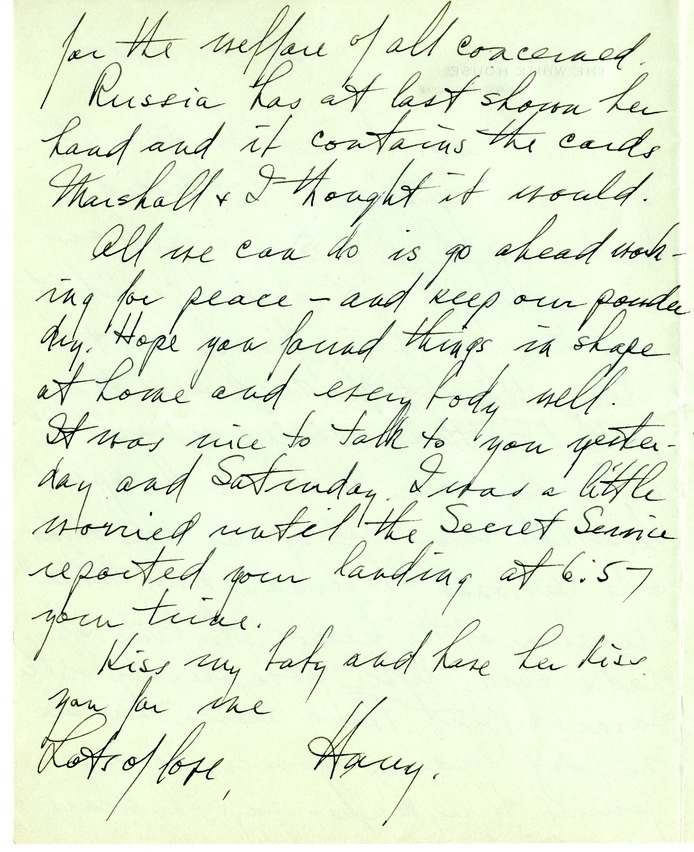 for the welfare of all concerned.
Russia has at last shown her
hand and it contains the cards
Marshall & I thought it would.
All we can do is go ahead work-
ing for peace - and keep our powder
dry. Hope you found things in shape
at home and everybody well.
It was nice to talk to you yester-
day and Saturday. I was a little
worried until the Secret Service
reported your landing at 6:57
your time.
Kiss my baby and have her kiss
you for me
Lots of love, Harry.